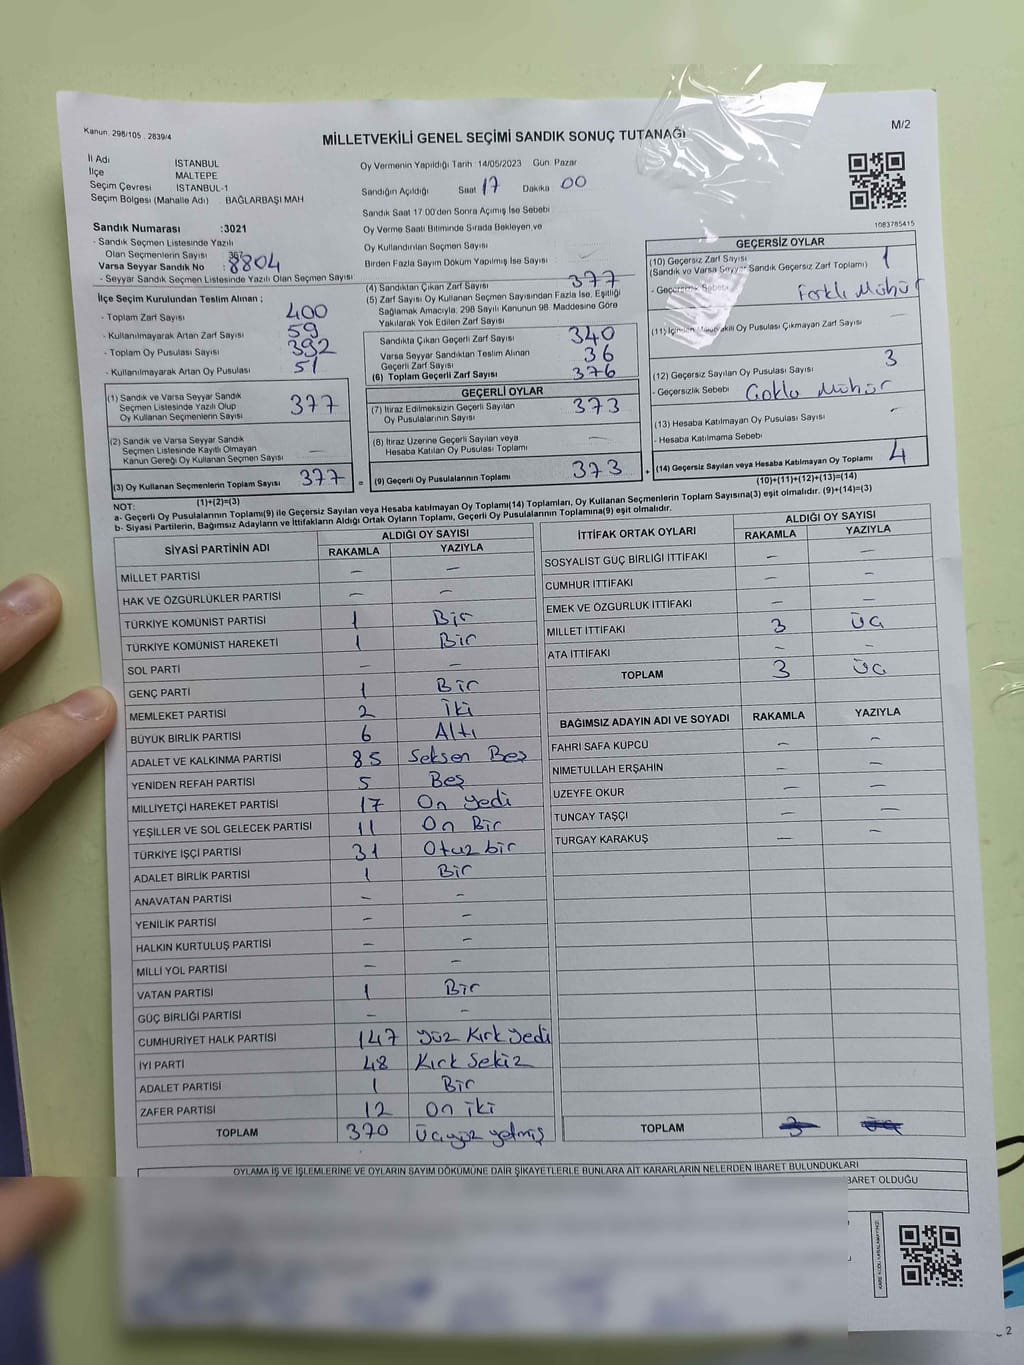 Kanun. 298/105 . 2839/4
MİLLETVEKİLİ GENEL SEÇİMİ SANDIK SONUÇ TUTANAĞI
M/2
İl Adı İSTANBUL
İlçe MALTEPE
Seçim Çevresi İSTANBUL-1
Seçim Bölgesi (Mahalle Adı) BAĞLARBAŞI MAH
Oy Vermenin Yapıldığı Tarih 14/05/2023 Gün. Pazar
Sandığın Açıldığı Saat 17 Dakika 00
Sandık Saat 17 00'den Sonra Açılmış İse Sebebi
Oy Verme Saati Bitiminde Sırada Bekleyen ve
Oy Kullandırılan Seçmen Sayısı
Birden Fazla Sayım Döküm Yapılmış İse Sayısı
1083785415
Sandık Numarası :3021
- Sandık Seçmen Listesinde Yazılı
Olan Seçmenlerin Sayısı : 367
Varsa Seyyar Sandık No : 8804
- Seyyar Sandık Seçmen Listesinde Yazılı Olan Seçmen Sayısı
İlçe Seçim Kurulundan Teslim Alınan ;
- Toplam Zarf Sayısı 400
- Kullanılmayarak Artan Zarf Sayısı 59
- Toplam Oy Pusulası Sayısı 392
- Kullanılmayarak Artan Oy Pusulası 51
(1) Sandık ve Varsa Seyyar Sandık
Seçmen Listesinde Yazılı Olup
Oy Kullanan Seçmenlerin Sayısı 377
(2) Sandık ve Varsa Seyyar Sandık
Seçmen Listesinde Kayıtlı Olmayan
Kanun Gereği Oy Kullanan Seçmen Sayısı —
(3) Oy Kullanan Seçmenlerin Toplam Sayısı 377
(1)+(2)=(3)
(4) Sandıktan Çıkan Zarf Sayısı 377
(5) Zarf Sayısı Oy Kullanan Seçmen Sayısından Fazla İse, Eşitliği
Sağlamak Amacıyla; 298 Sayılı Kanunun 98 Maddesine Göre
Yakılarak Yok Edilen Zarf Sayısı
Sandıkta Çıkan Geçerli Zarf Sayısı 340
Varsa Seyyar Sandıktan Teslim Alınan
Geçerli Zarf Sayısı 36
(6) Toplam Geçerli Zarf Sayısı 376
GEÇERLİ OYLAR
(7) İtiraz Edilmeksizin Geçerli Sayılan
Oy Pusulalarının Sayısı 373
(8) İtiraz Üzerine Geçerli Sayılan veya
Hesaba Katılan Oy Pusulası Toplamı —
= (9) Geçerli Oy Pusulalarının Toplamı 373 +
GEÇERSİZ OYLAR
(10) Geçersiz Zarf Sayısı 1
(Sandık ve Varsa Seyyar Sandık Geçersiz Zarf Toplamı)
- Geçersizlik Sebebi Farklı Mühür
(11) İçinden Milletvekili Oy Pusulası Çıkmayan Zarf Sayısı —
(12) Geçersiz Sayılan Oy Pusulası Sayısı 3
- Geçersizlik Sebebi Çoklu Mühür
(13) Hesaba Katılmayan Oy Pusulası Sayısı —
- Hesaba Katılmama Sebebi
(14) Geçersiz Sayılan veya Hesaba Katılmayan Oy Toplamı 4
(10)+(11)+(12)+(13)=(14)
NOT:
a- Geçerli Oy Pusulalarının Toplamı(9) ile Geçersiz Sayılan veya Hesaba katılmayan Oy Toplamı(14) Toplamları, Oy Kullanan Seçmenlerin Toplam Sayısına(3) eşit olmalıdır. (9)+(14)=(3)
b- Siyasi Partilerin, Bağımsız Adayların ve İttifakların Aldığı Ortak Oyların Toplamı, Geçerli Oy Pusulalarının Toplamına(9) eşit olmalıdır.
SİYASİ PARTİNİN ADI ALDIĞI OY SAYISI
RAKAMLA YAZIYLA
MİLLET PARTİSİ — —
HAK VE ÖZGÜRLÜKLER PARTİSİ — —
TÜRKİYE KOMÜNİST PARTİSİ 1 Bir
TÜRKİYE KOMÜNİST HAREKETİ 1 Bir
SOL PARTİ — —
GENÇ PARTİ 1 Bir
MEMLEKET PARTİSİ 2 İki
BÜYÜK BİRLİK PARTİSİ 6 Altı
ADALET VE KALKINMA PARTİSİ 85 Seksen Beş
YENİDEN REFAH PARTİSİ 5 Beş
MİLLİYETÇİ HAREKET PARTİSİ 17 On yedi
YEŞİLLER VE SOL GELECEK PARTİSİ 11 On Bir
TÜRKİYE İŞÇİ PARTİSİ 31 Otuz bir
ADALET BİRLİK PARTİSİ 1 Bir
ANAVATAN PARTİSİ — —
YENİLİK PARTİSİ — —
HALKIN KURTULUŞ PARTİSİ — —
MİLLİ YOL PARTİSİ — —
VATAN PARTİSİ 1 Bir
GÜÇ BİRLİĞİ PARTİSİ — —
CUMHURİYET HALK PARTİSİ 147 yüz Kırk yedi
İYİ PARTİ 48 Kırk Sekiz
ADALET PARTİSİ 1 Bir
ZAFER PARTİSİ 12 On iki
TOPLAM 370 Üçyüz yetmiş
İTTİFAK ORTAK OYLARI ALDIĞI OY SAYISI
RAKAMLA YAZIYLA
SOSYALİST GÜÇ BİRLİĞİ İTTİFAKI — —
CUMHUR İTTİFAKI — —
EMEK VE ÖZGÜRLÜK İTTİFAKI — —
MİLLET İTTİFAKI 3 Üç
ATA İTTİFAKI — —
TOPLAM 3 Üç
BAĞIMSIZ ADAYIN ADI VE SOYADI RAKAMLA YAZIYLA
FAHRİ SAFA KÜPCÜ — —
NİMETULLAH ERŞAHİN — —
UZEYFE OKUR — —
TUNCAY TAŞÇI — —
TURGAY KARAKUŞ — —
TOPLAM 3 Üç
OYLAMA İŞ VE İŞLEMLERİNE VE OYLARIN SAYIM DÖKÜMÜNE DAİR ŞİKAYETLERLE BUNLARA AİT KARARLARIN NELERDEN İBARET BULUNDUKLARI
BARET OLDUĞU
2